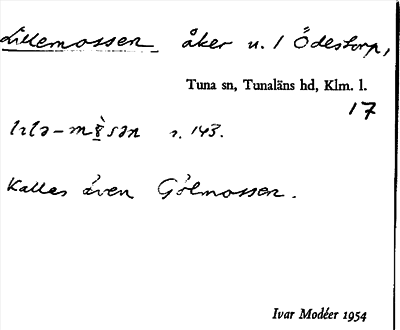 Lillemossen åker u. 1 Ödestorp,
Tuna sn, Tunaläns hd, Klm. l.
17
s. 143.
Kallas även Gölmossen.
Ivar Modéer 1954